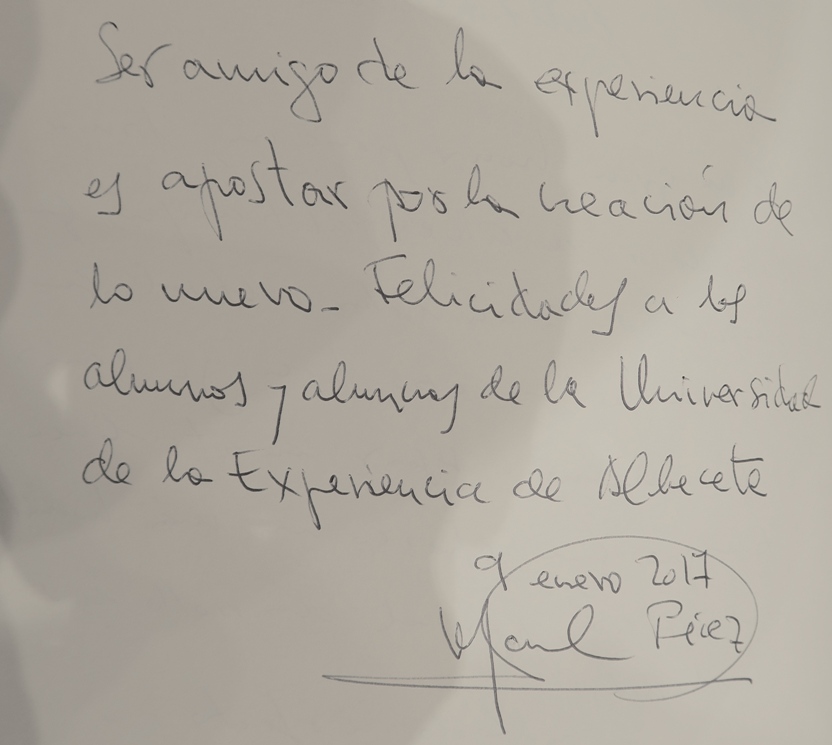 Ser amigo de la experiencia
es apostar por la creación de
lo nuevo. Felicidades a los
alumnos y alumnas de la Universidad
de la Experiencia de Albacete
9 enero 2017
Pérez